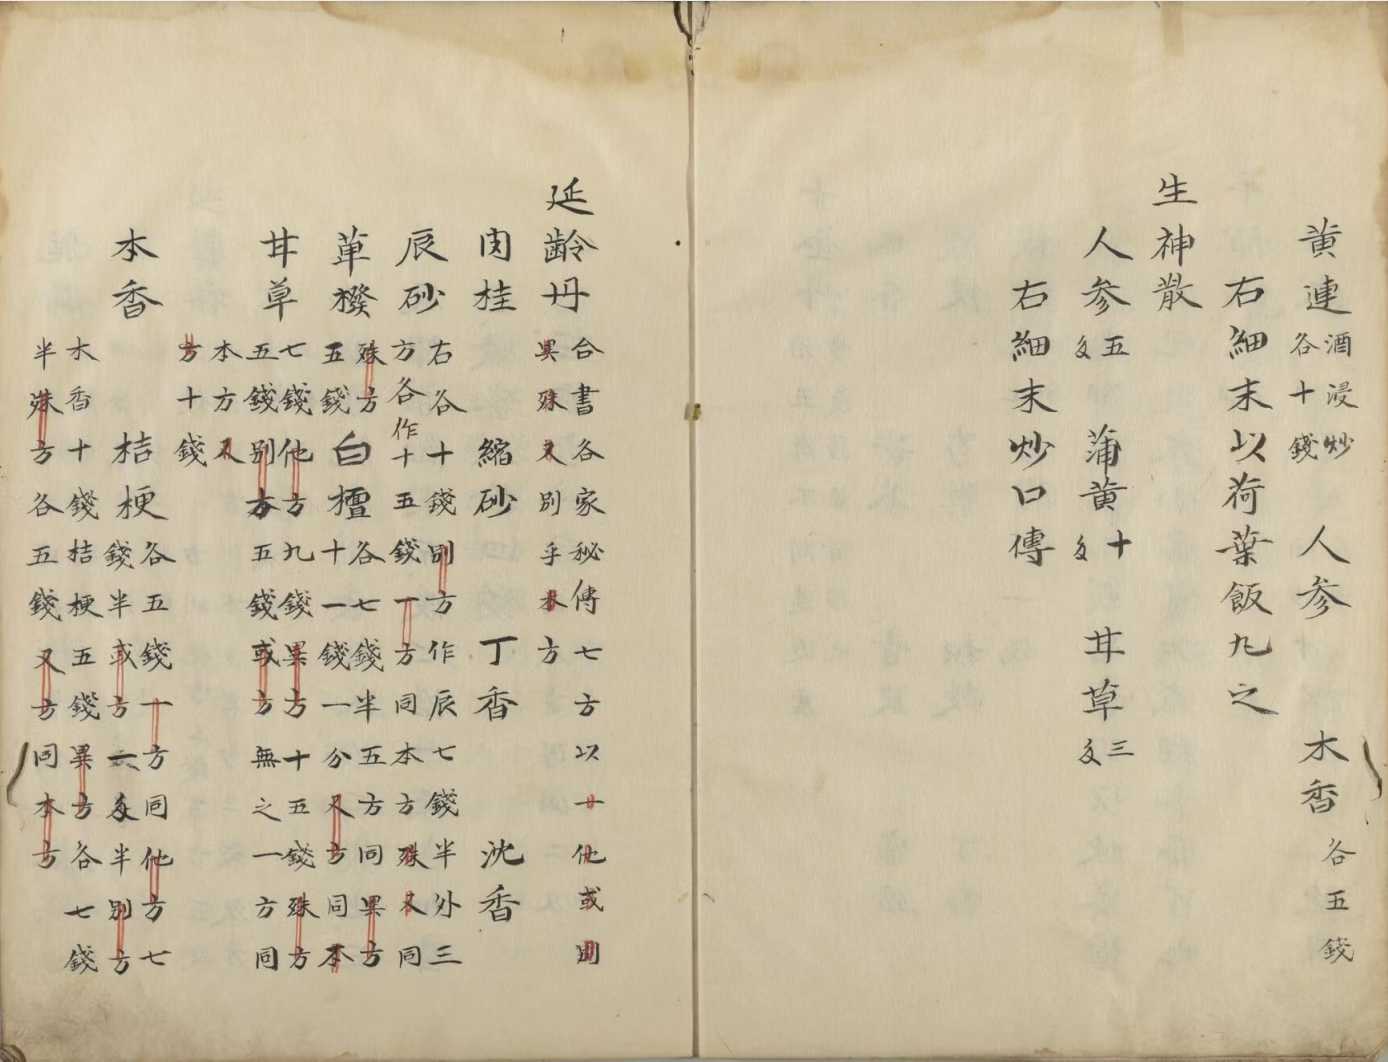 黄連酒浸炒各十錢 人参 木香各五錢
右細末以荷葉飯丸之
生神散
人参五匁 蒲黄十匁 甘草三匁
右細末炒口傳
延齢丹合書各家秘傳七方以十他或別異殊又別乎本方
肉桂 縮砂 丁香 沈香
辰砂右各十錢別方作辰七錢半外三方各作十五錢一方同本方殊又同
蓽撥殊方五錢 白檀各七錢半五方同異方十一錢一分又方同本
甘草七錢他方九錢異方十五錢殊方五錢別方五錢或方無之一方同
本方又方十錢
木香 桔梗各五錢一方同他方七錢半或方六匁半別方
木香十錢桔梗五錢異方各七錢半殊方各五錢又方同本方